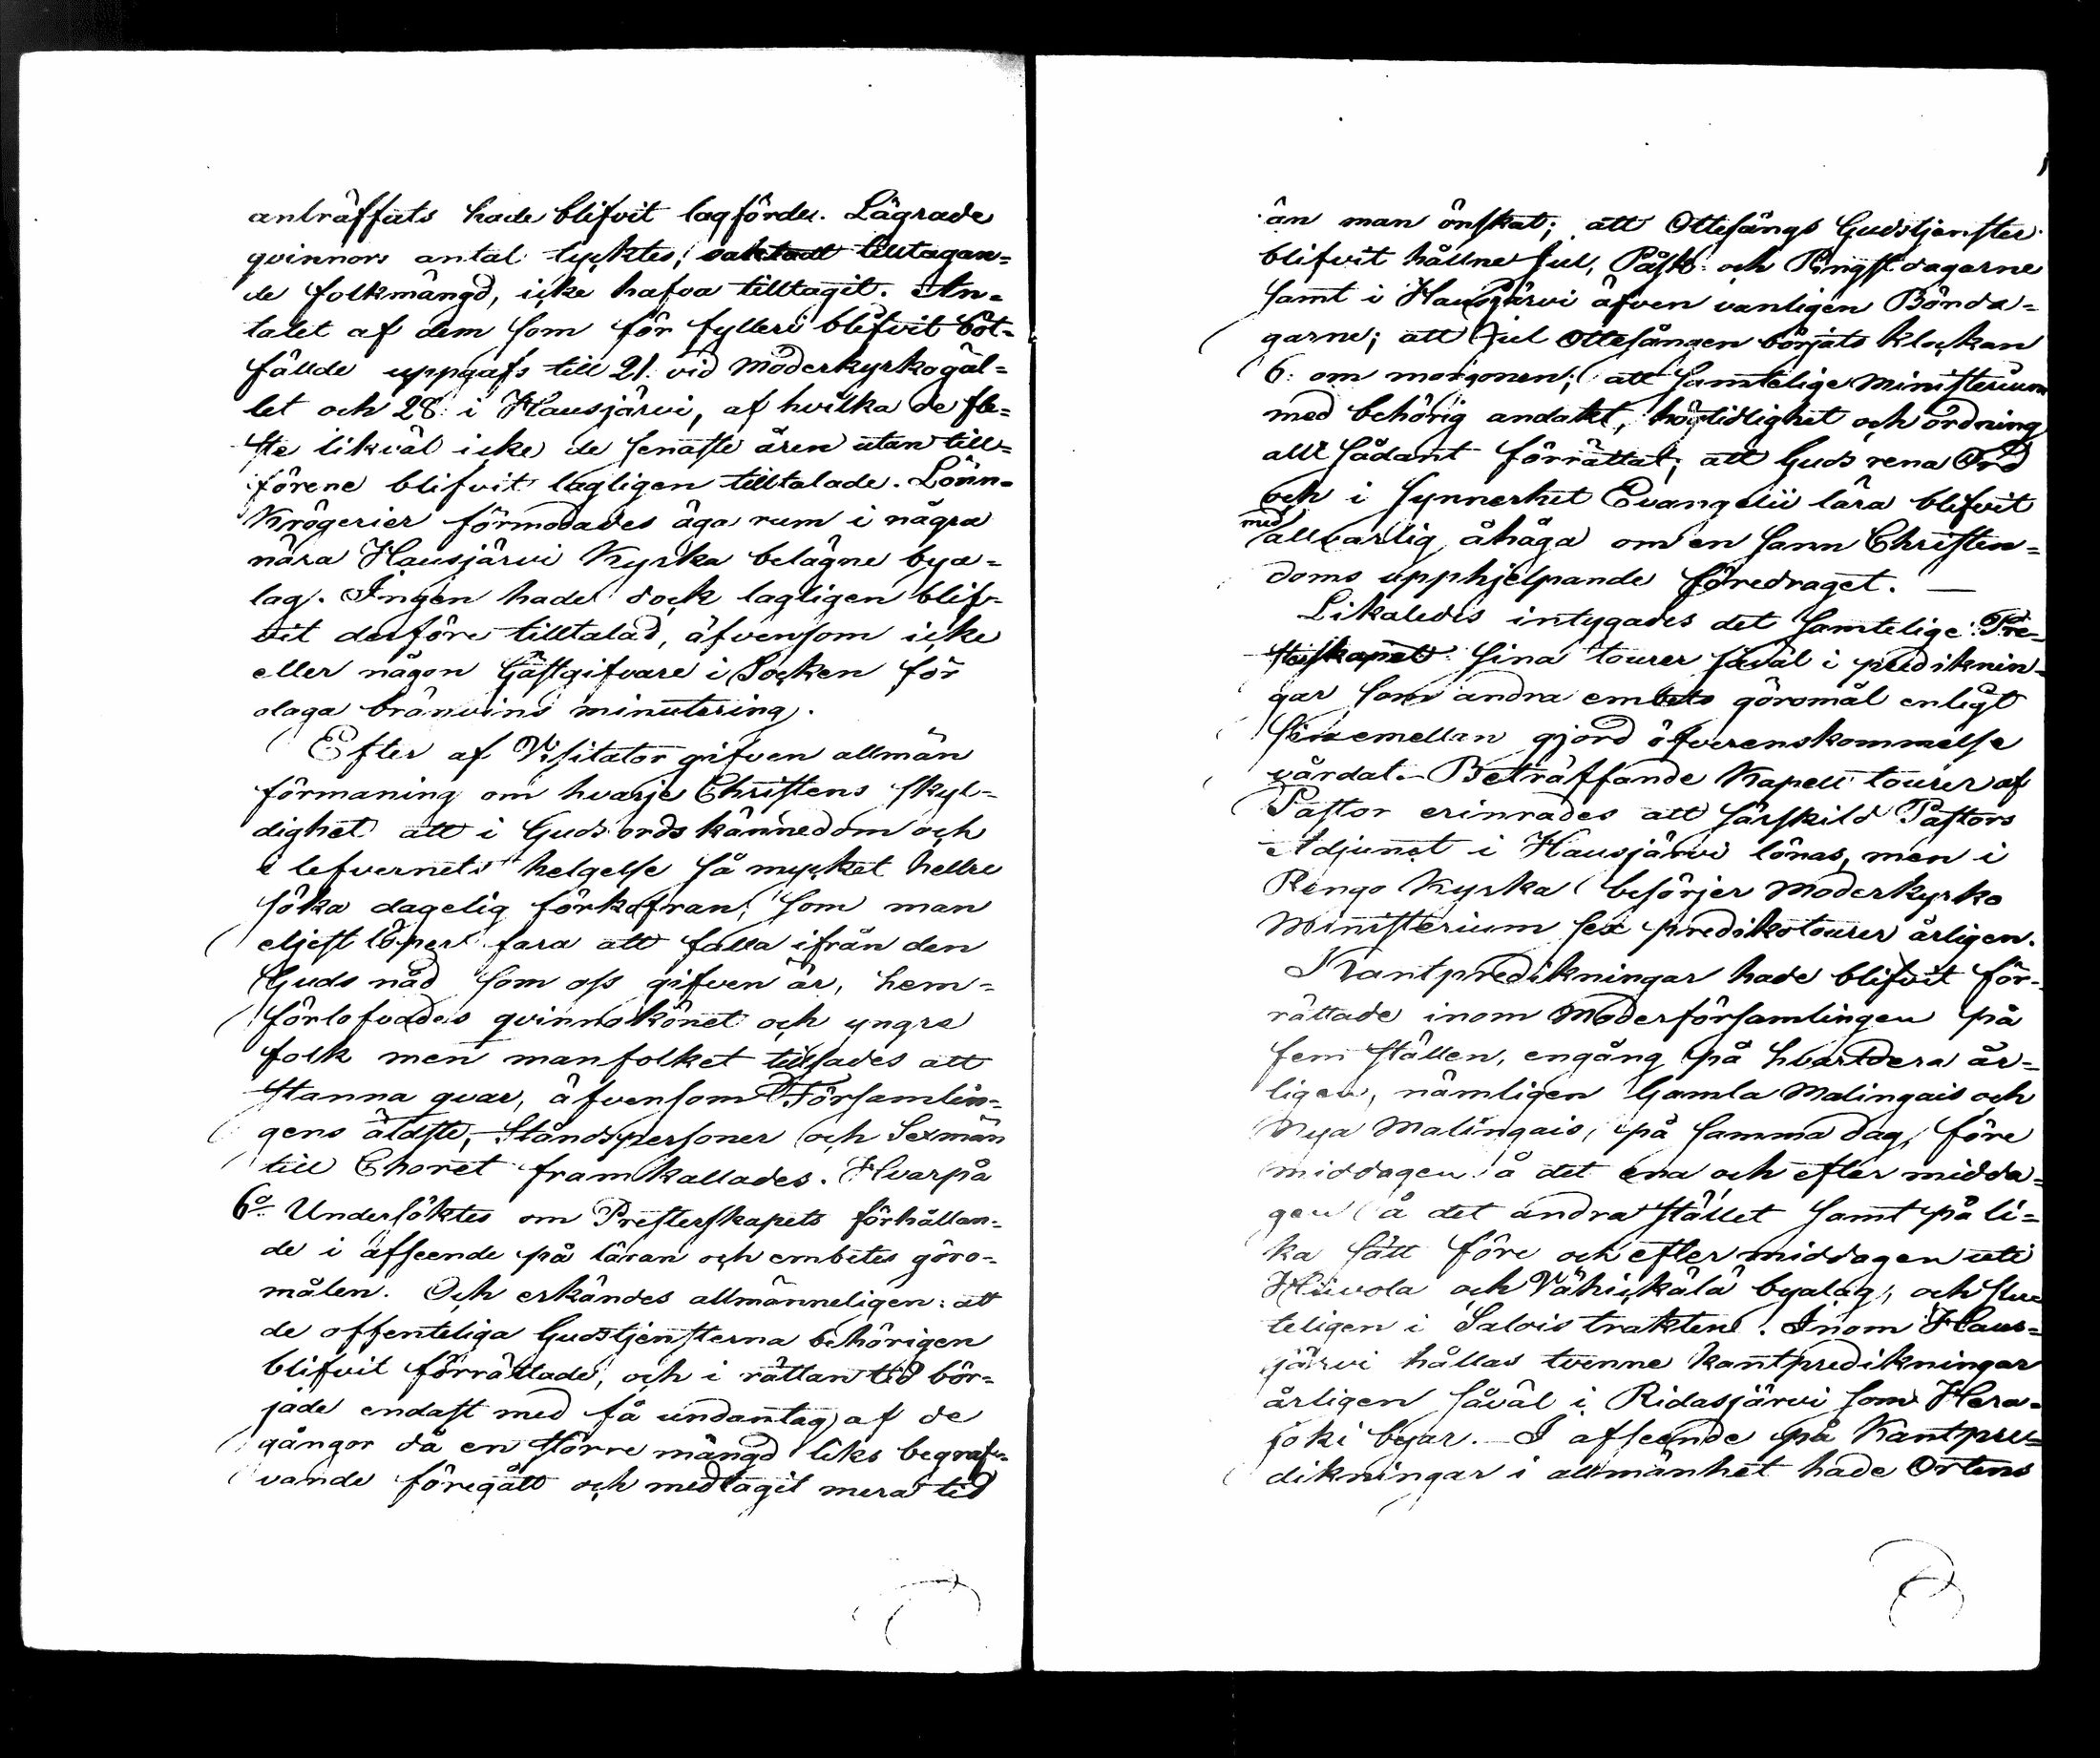 anträffats hade blifvit lagförder. Lägrade
qvinnors antal tycktes, oaktadt tilltagan=
de folkmängd, icke hafva tilltagit. An=
talet af dem som för fylleri blifvit böt=
fällde uppgafs till 21. vid Moderkyrkogäl=
let och 28. i Hausjärvi, af hvilka de fle=
ste likväl icke de senaste åren utan till=
förene blifvit lagligen tilltalade. Lönn=
Krögerier förmodades äga rum i några
nära Hausjärvi Kyrka belägne bya=
lag. Ingen hade dock lagligen blif=
vit derföre tilltalad, äfvensom icke
eller någon Gästgifvare i Socken för
olaga bränvins minutering.
Efter af Visitator gifven allmän
förmaning om hvarje Christens skyl=
dighet att i Guds ords kännedom och
i lefvernets helgelse så mycket hellre
söka dagelig förkofran, som man
eljest löper fara att falla ifrån den
Guds nåd som oss gifven är, hem=
förlofvades qvinnokönet och yngre
folk men manfolket tillsades att
stanna qvar, äfvensom Församlin=
gens äldste, Ståndspersoner och Sexmän
till Choret framkallades. Hvarpå
6o. Undersöktes om Presterskapets förhållan=
de i afseende på läran och embetes göro=
målen. Och erkändes allmänneligen: att
de offenteliga Gudstjensterna behörigen
blifvit förrättade, och i rättan tid bör=
jade endast med få undantag af de
gångor då en större mängd liks begraf=
vande föregått och medtagit mera tid
än man önskat; att Ottesångs Gudstjenster
blifvit hållne Jul, Påsk= och Pingst dagarne
samt i Hausjärvi äfven vanligen Bönda=
garne; att Jul Ottesången börjats klockan
6: om morgonen; att samtelige Ministerium
med behörig andakt, högtidlighet och ordning
allt sådant förrättat; att Guds rena Ord
och i synnerhet Evangelii lära blifvit
med allvarlig åhåga om en sann Christen=
doms upphjelpande föredraget. —
Likaledes intygades det samtelige Pre=
sterskapet sina tourer såväl i prediknin=
gar som andra embets göromål enligt
sinsemellan gjord öfverenskommelse
vårdat. — Beträffande Kapell tourer af
Pastor erinrades att särskild Pastors
Adjunct i Hausjärvi lönas, men i
Rengo Kyrka besörjer Moderkyrko
Ministerium sex predikotourer årligen.
Kantpredikningar hade blifvit för=
rättade inom Moderförsamlingen på
fem ställen, engång på hvartdera år=
ligen, nämligen Gamla Malingais och
Nya Malingais, på samma dag, före
middagen å det ena och efter midda=
gen å det andra stället samt på li=
ka sätt före och efter middagen uti
Hiivola och Vähickälä byalag, och slu
teligen i Salois trakten. Inom Haus=
järvi hållas tvenne kantpredikningar
årligen såväl i Ridasjärvi som Hera=
joki byar. — I afseende på Kantpre=
dikningar i allmänhet hade Ortens